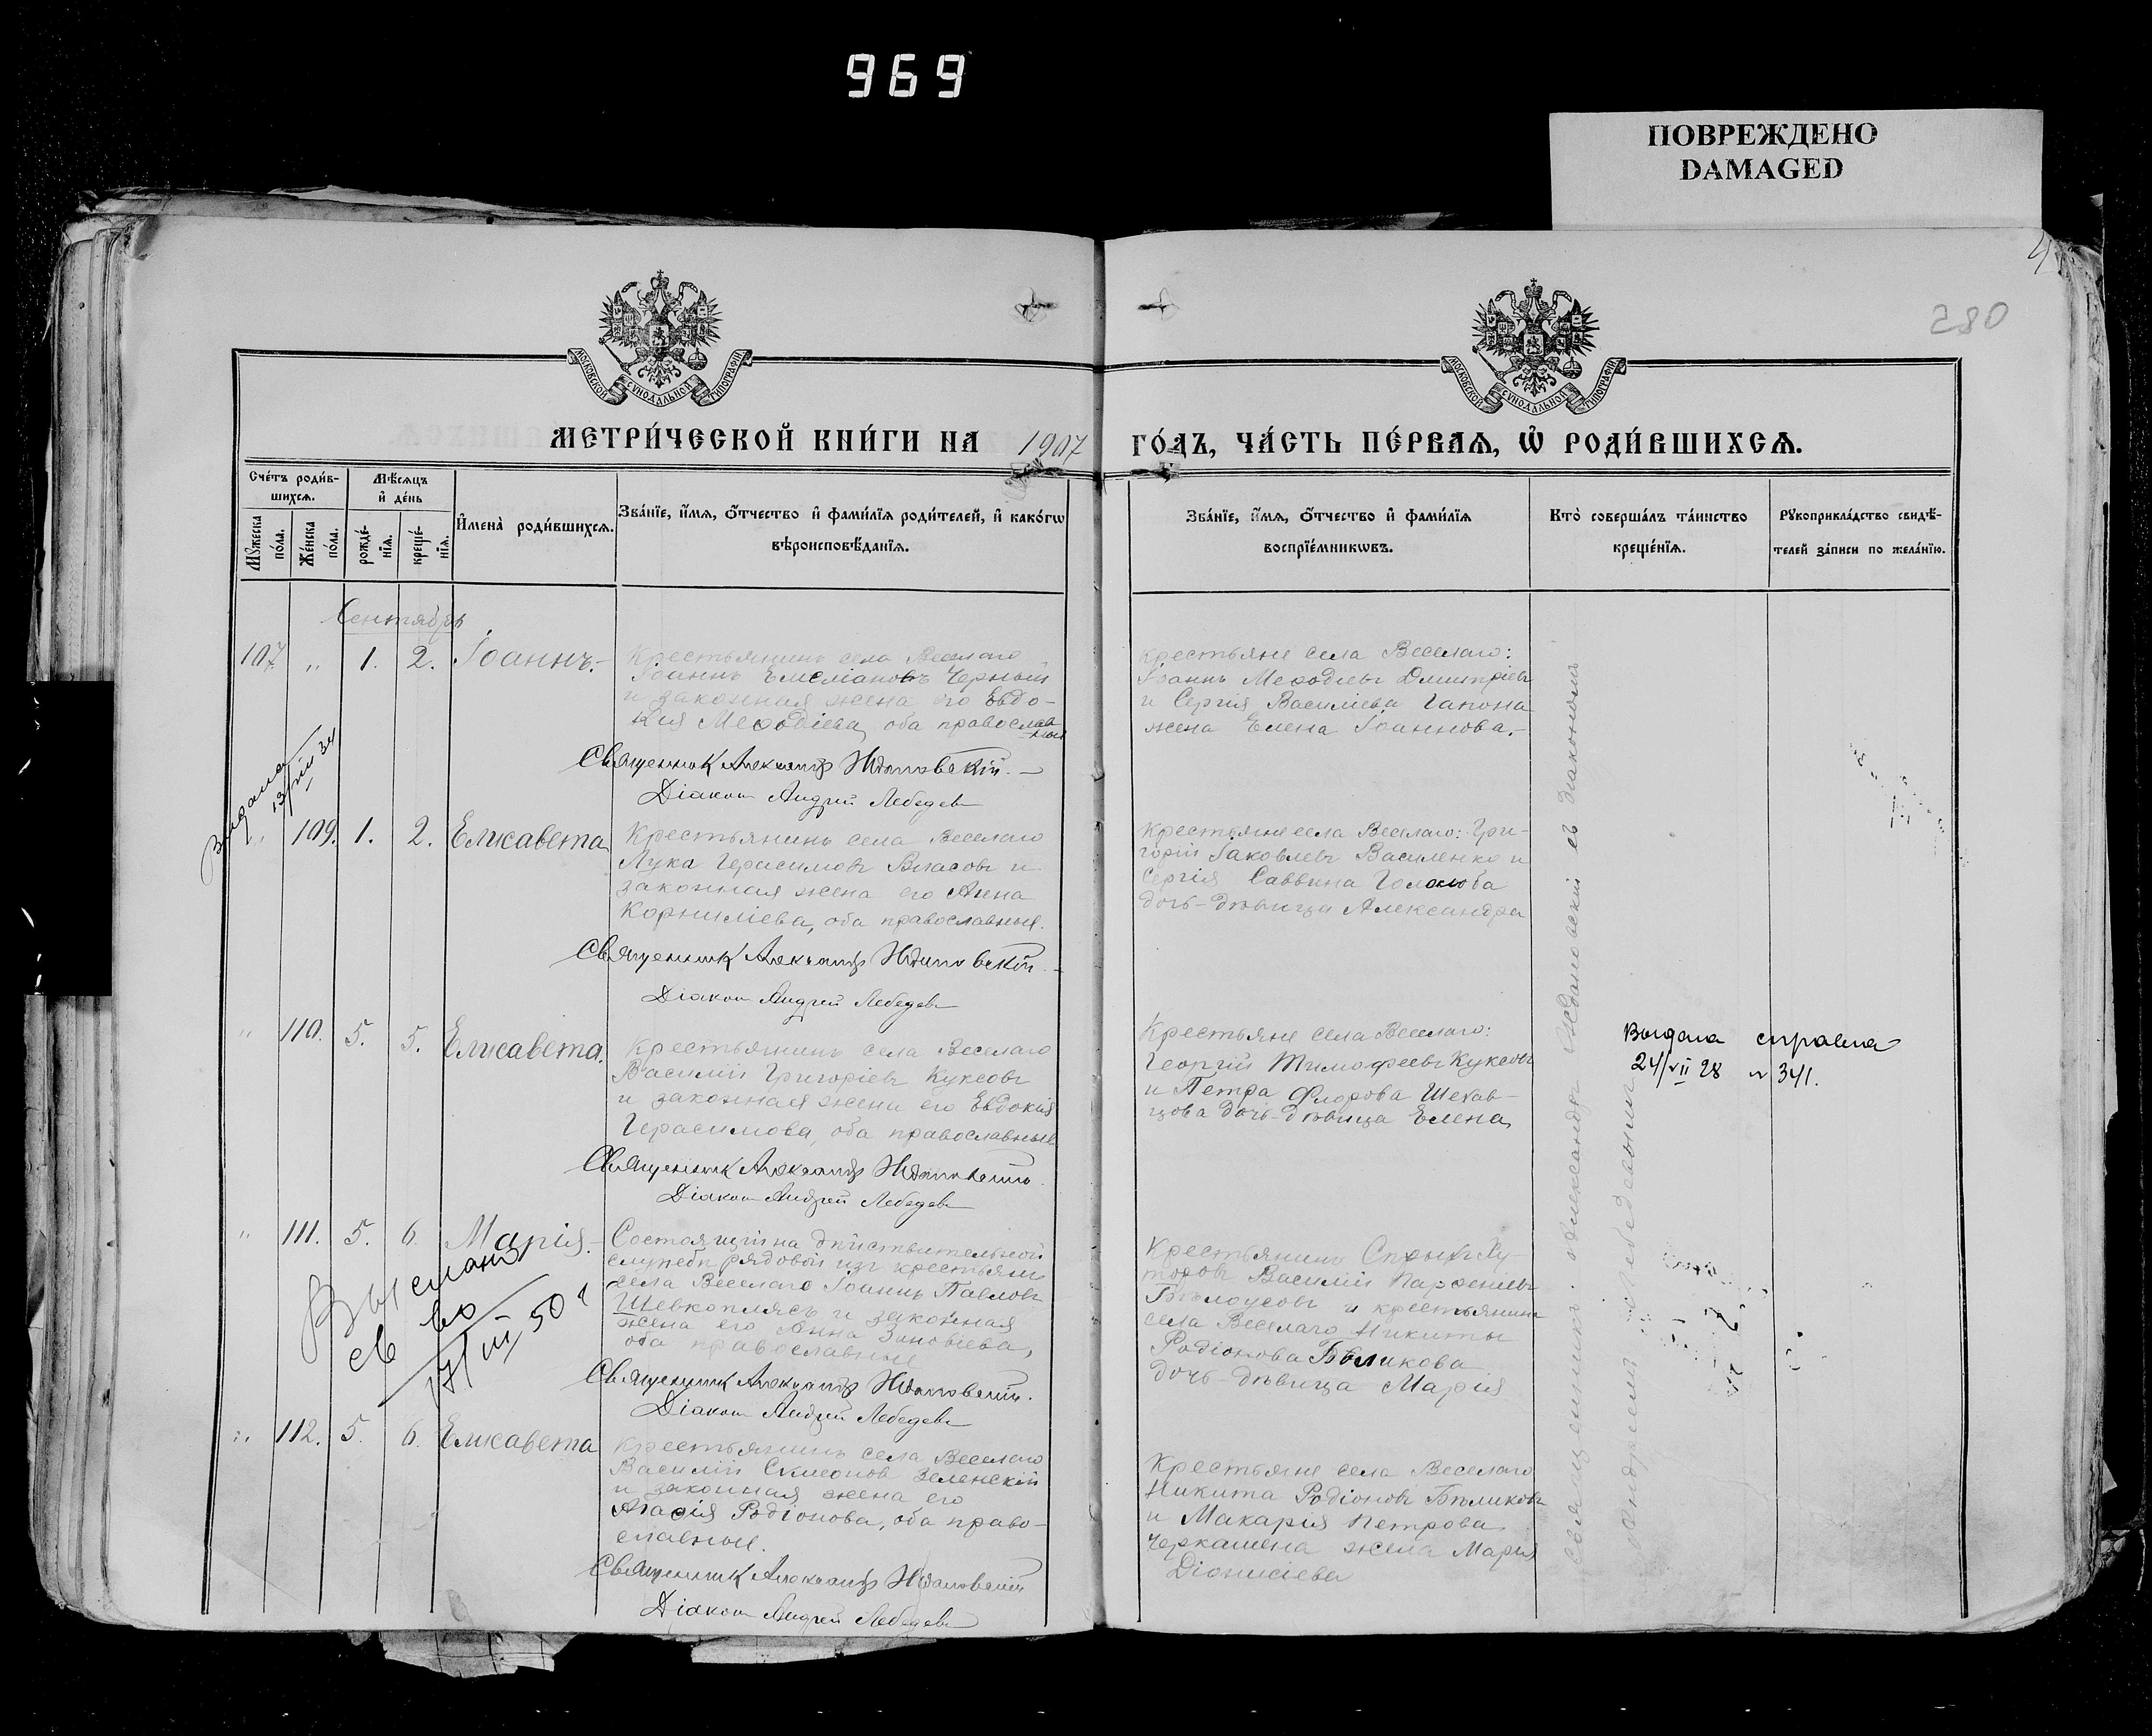 969
ПОВРЕЖДЕНО
DAMAGED
4
280
МОСКОВСКОЙ СѴНОДАЛЬНОЙ ТИПОГРАФІИ
МОСКОВСКОЙ СѴНОДАЛЬНОЙ ТИПОГРАФІИ
МЕТРИ́ЧЕСКОЙ КНИ́ГИ НА 1907 ГО́ДЪ, ЧА́СТЬ ПЕ́РВАѦ, Ѡ҆ РОДИ́ВШИХСѦ.
Сче́тъ роди́в-
шихсѧ.
Мꙋ́жеска по́ла.
Же́нска по́ла.
Мѣ́сѧцъ
и҆ де́нь
рожде́-
нїѧ.
креще́-
нїѧ.
И҆мена̀ роди́вшихсѧ.
Зва́нїе, и҆́мѧ, ѻ҆́тчество и҆ фами́лїѧ роди́телей, и҆ како́гѡ
вѣроисповѣ́данїѧ.
Зва́нїе, и҆́мѧ, ѻ҆́тчество и҆ фами́лїѧ
воспрїе́мникѡвъ.
Кто̀ соверша́лъ та́инство
креще́нїѧ.
Рꙋкоприкла́дство свидѣ́-
телей за́писи по жела́нїю.
Сентябрь
107 " 1. 2. Іоаннъ.-
Крестьянинъ села Веселаго
Іоаннъ Емеліановъ Черный
и законная жена его Евдо-
кія Меѳодіева, оба православ
ные
Священникъ Александръ Ждановскій.-
Діаконъ Андрей Лебедевъ
Крестьяне села Веселаго:
Іоаннъ Меѳодіевъ Дмитріевъ
и Сергія Василіева Гапона
жена Елена Іоаннова.-
Выдана
13/VIII 34
" 109. 1. 2. Елисавета
Крестьянинъ села Веселаго
Лука Герасимовъ Власовъ и
законная жена его Анна
Корниліева, оба православные.
Священникъ Александръ Ждановскій.-
Діаконъ Андрей Лебедевъ
Крестьяне села Веселаго: Гри-
горій Іаковлевъ Василенко и
Сергія Саввина
дочь-дѣвица Александра
" 110. 5. 5. Елисавета.
Крестьянинъ села Веселаго
Василій Григоріевъ Куксовъ
и законная жена его Евдокія
Герасимова, оба православные
Священникъ Александръ Ждановскій.
Діаконъ Андрей Лебедевъ
Крестьяне села Веселаго:
Георгій Тимоѳеевъ Куксовъ
и Петра Флорова Шевав-
цова дочь-дѣвица Елена
Выдана справка
24/VII 28 № 341.
" 111. 5. 6. Марія.-
Состоящій на дѣйствительной
службѣ рядовой изъ крестьянъ
села Веселаго Іоаннъ Павловъ
Шевкоплясъ и законная
жена его Анна Зиновіева,
оба православные
Священникъ Александръ Ждановскій.
Діаконъ Андрей Лебедевъ
Выслано
св во
17/III 50 г
Крестьянинъ Ху-
торовъ Василій Парѳеніевъ
Бѣлоусовъ и крестьянина
села Веселаго Никиты
Родіонова Бѣликова
дочь-дѣвица Марія
" 112. 5. 6. Елисавета
Крестьянинъ села Веселаго
Василій Симеоновъ Зеленскій
и законная жена его
Агаѳія Родіонова, оба право-
славные.
Священникъ Александръ Ждановскій
Діаконъ Андрей Лебедевъ
Крестьяне села Веселаго
Никита Родіоновъ Бѣликовъ
и Макарія Петрова
Черкашена жена Марія
Діонисіева
Священникъ Александръ Ждановскій съ діакономъ
Андреемъ Лебедевымъ